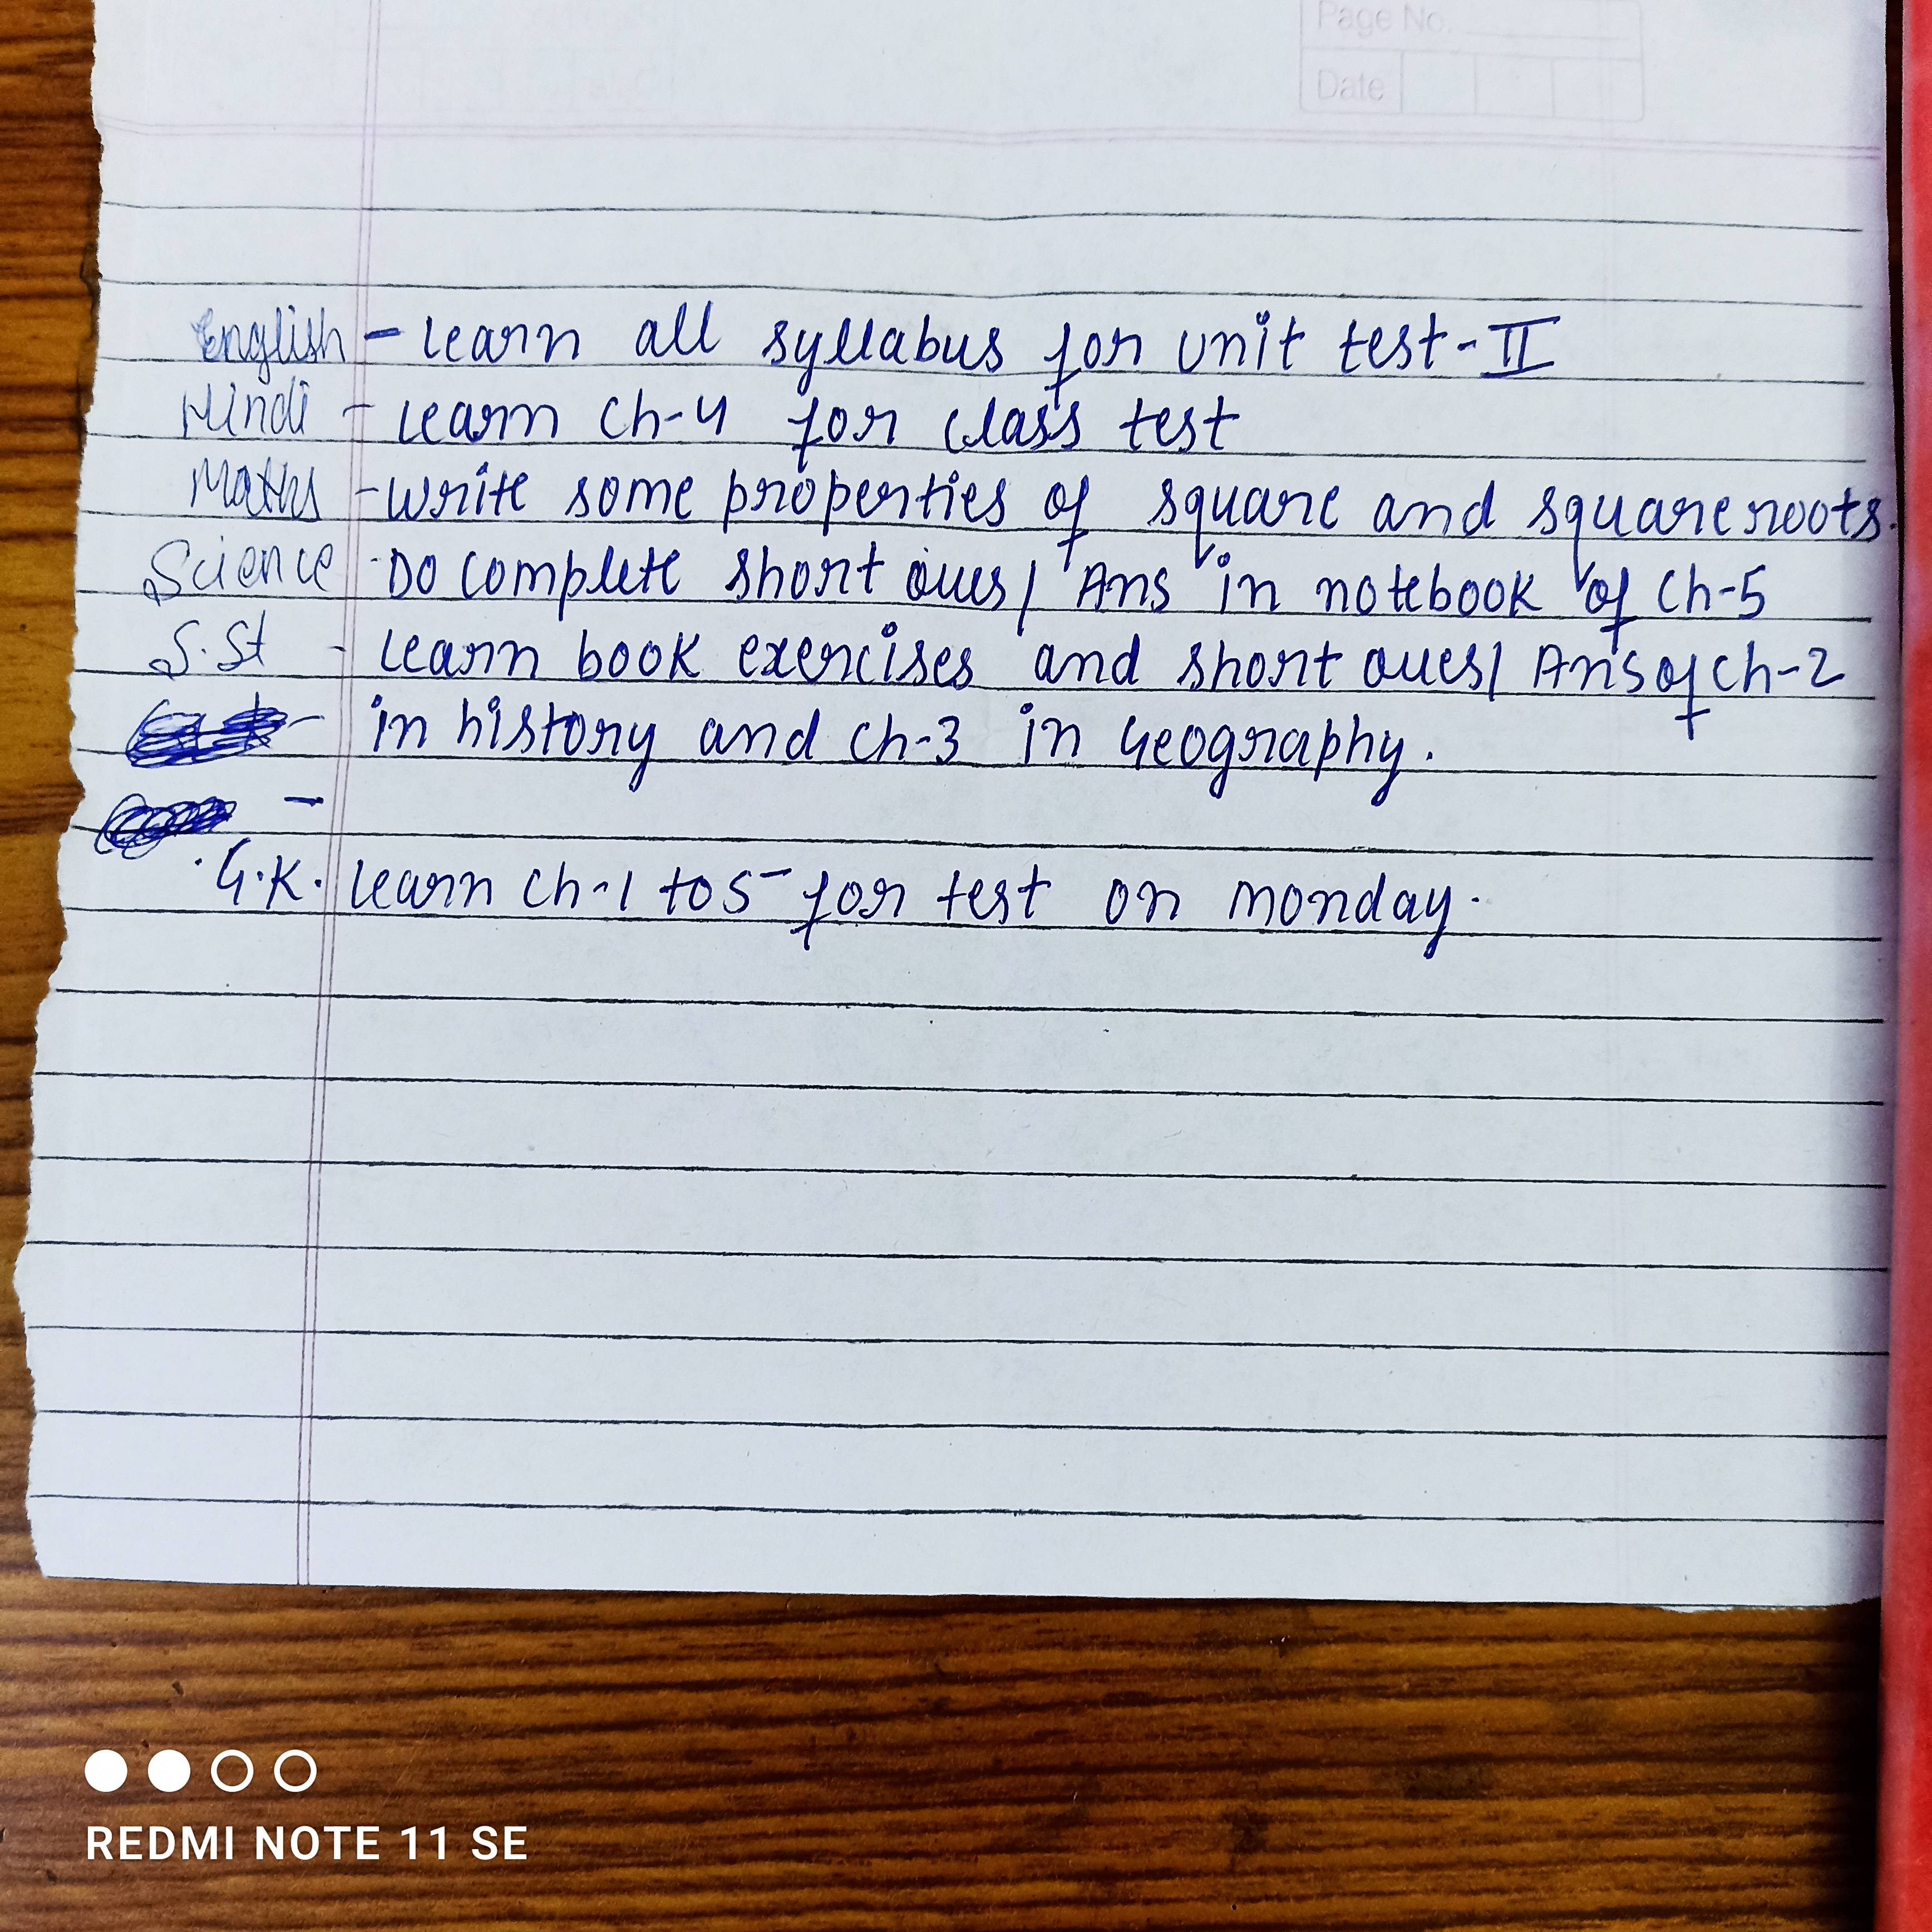 Page No.
Date
English - Learn all syllabus for unit test-II
Hindi - Learn Ch-4 for class test
Maths - Write some properties of square and square roots.
Science - Do complete short Ques/ Ans in notebook of Ch-5
S.St - Learn book exercises and short Ques/ Ans of Ch-2
- in history and Ch-3 in Geography.
-
G.K. Learn Ch-1 to 5 for test on monday.
REDMI NOTE 11 SE